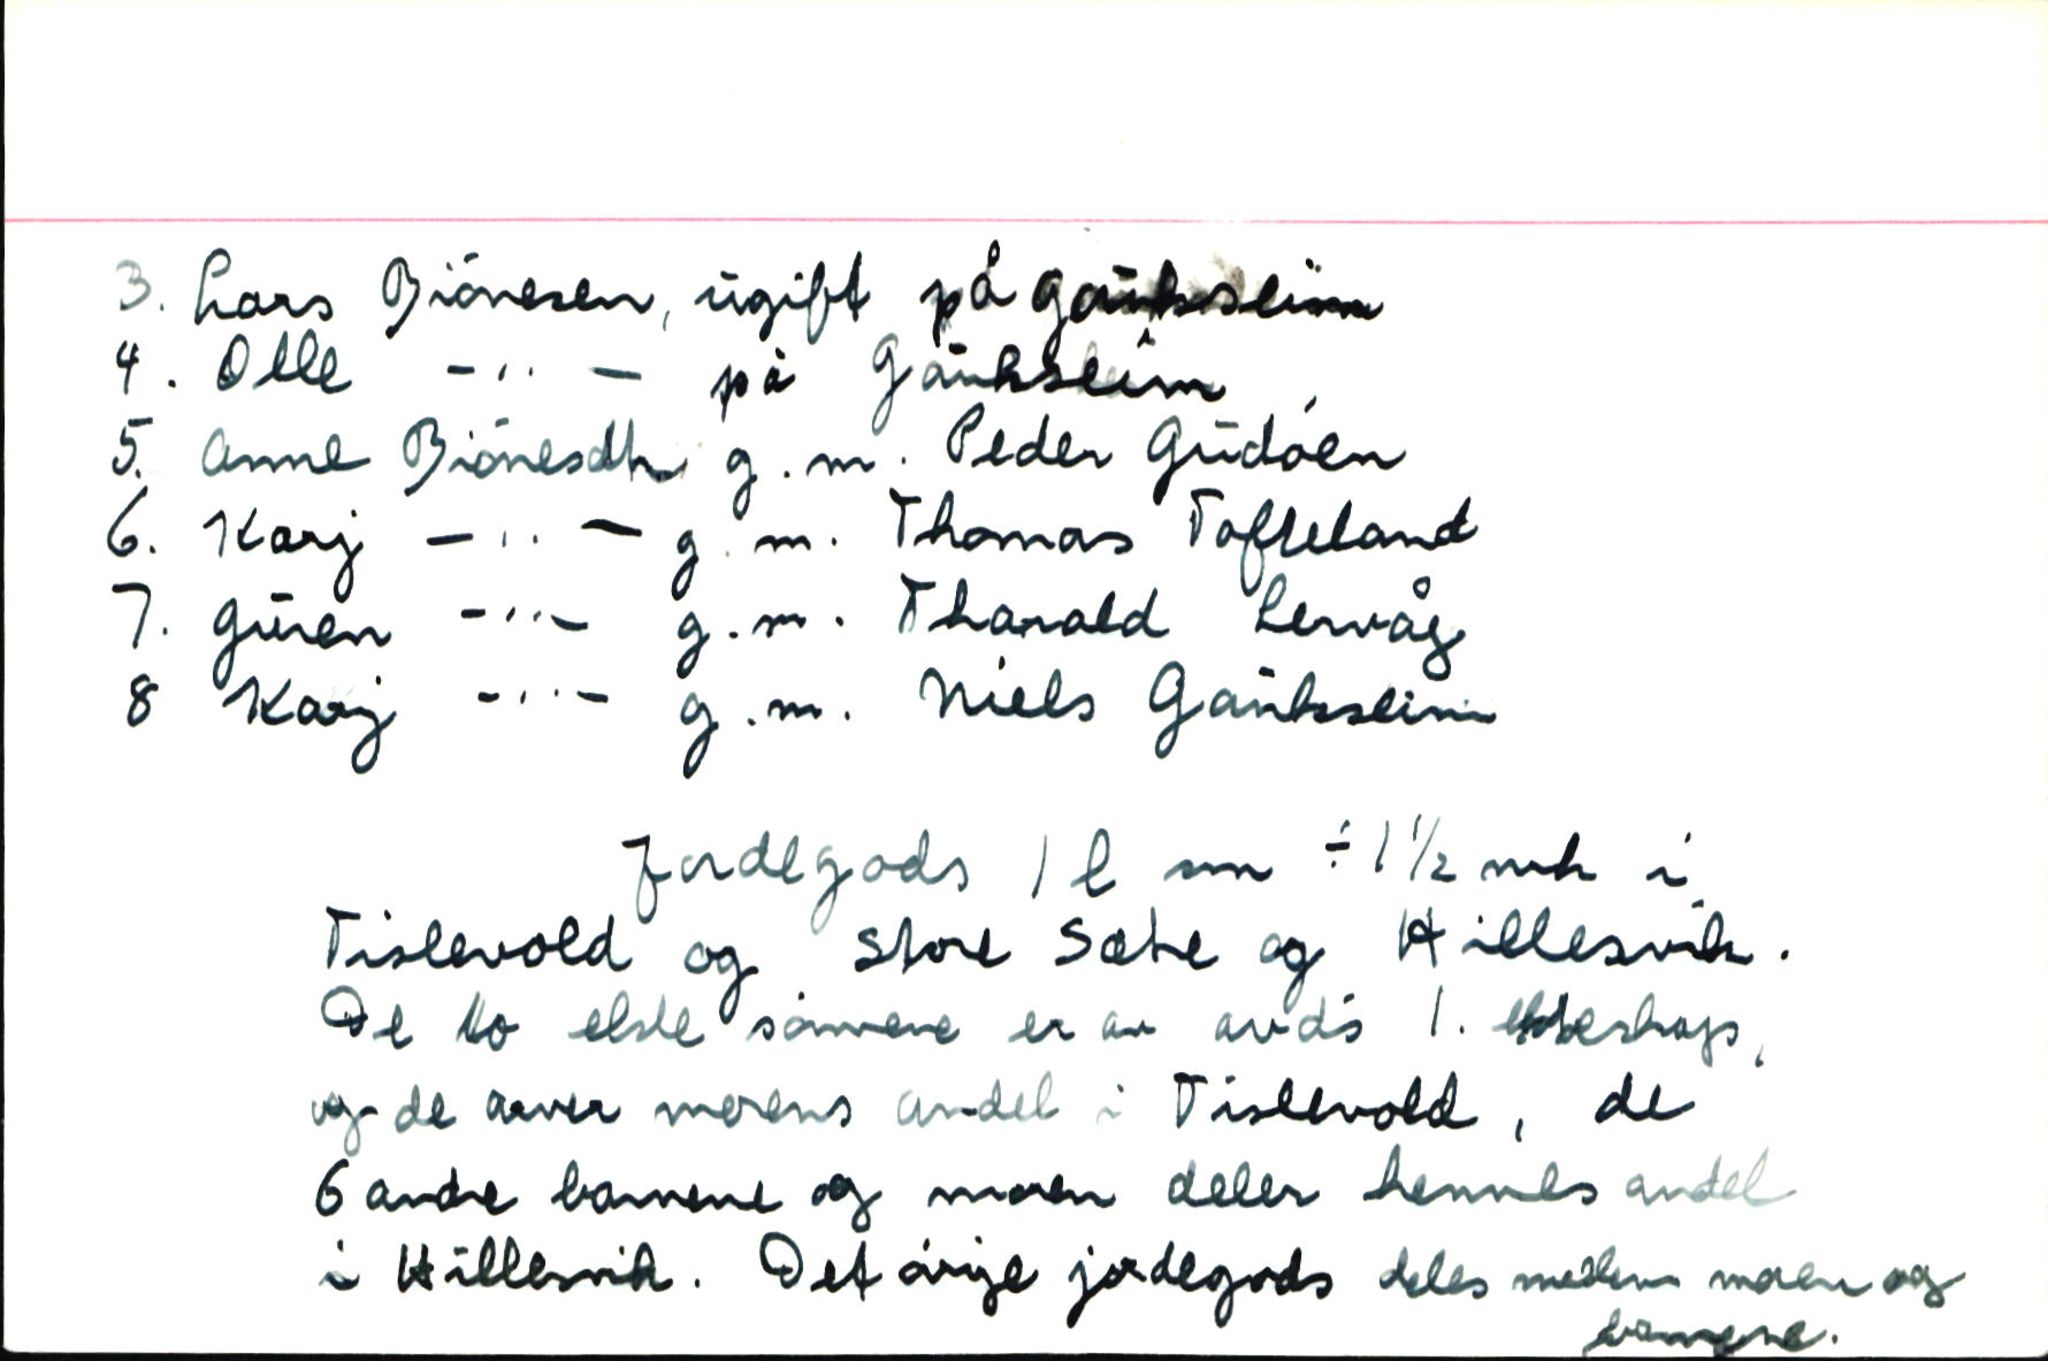 3. Lars Biónesen, ūgift på Gaūksseim
4. Olle -"- på Gaūkseim
5. Anne Biónesdtr g.m. Peder Gūdóen
6. Karj -"- g.m. Thomas Tofteland
7. Gūren -"- g.m. Tharald Lervåg
8 Karj -"- g.m. Niels Gaūksseim
Jordegods 1 l sm ÷ 1 1/2 mk i
Tislevold og Store Sæte og Hillesvik.
De to elste sónnene er av avdó's 1. ekteskap,
og de arver morens andel i Tislevold, de
6 andre barnene og moren deler hennes andel
i Hillesvik. Det óvrige jordegods deles mellem moren og
barnene.